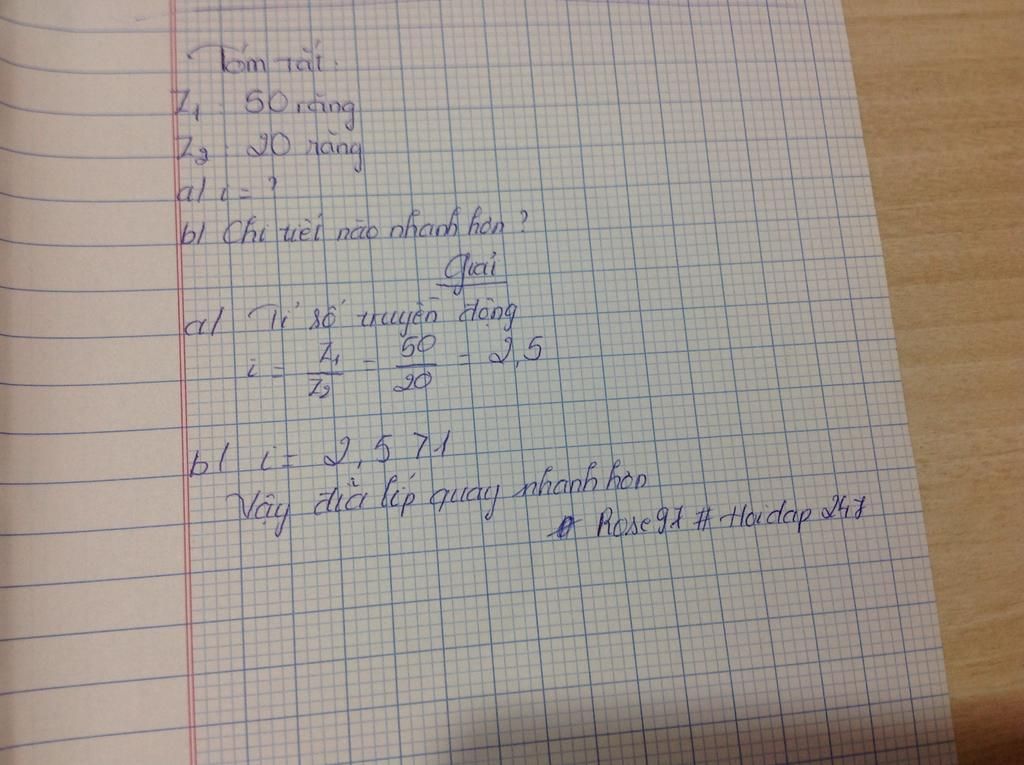 Tóm tắt:
Z₁ : 50 răng
Z₂ : 20 răng
a/ i = ?
b/ Chi tiết nào nhanh hơn ?
Giải
a/ Tỉ số truyền động
i = Z₁/Z₂ = 50/20 = 2,5
b/ i = 2,5 > 1
Vậy đĩa líp quay nhanh hơn
Rose97 # Hoidap 247